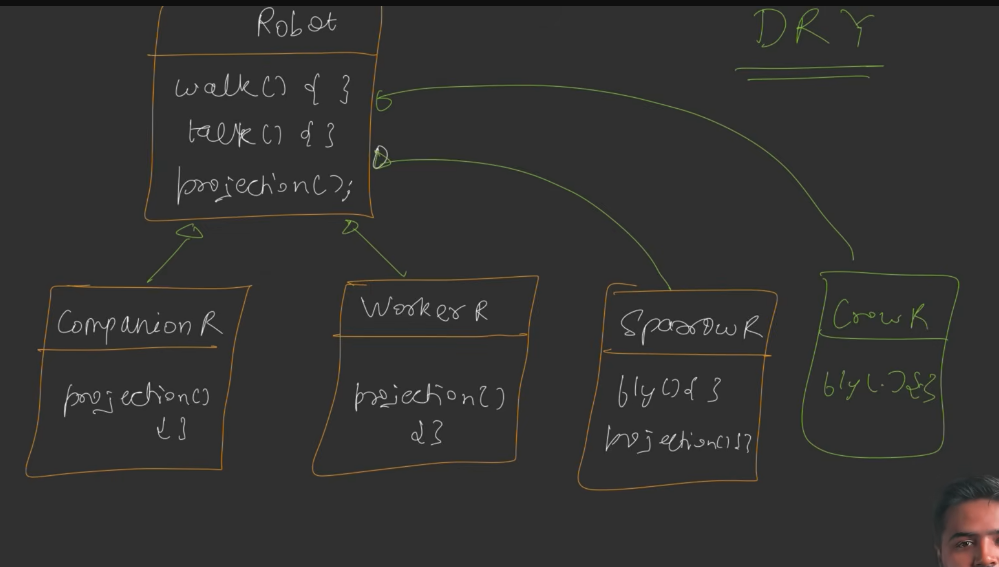 Robot
DRY
walk() { }
talk() { }
projection();
CompanionR
projection()
{ }
WorkerR
projection()
{ }
SparrowR
fly() { }
projection() { }
CrowR
fly() { }